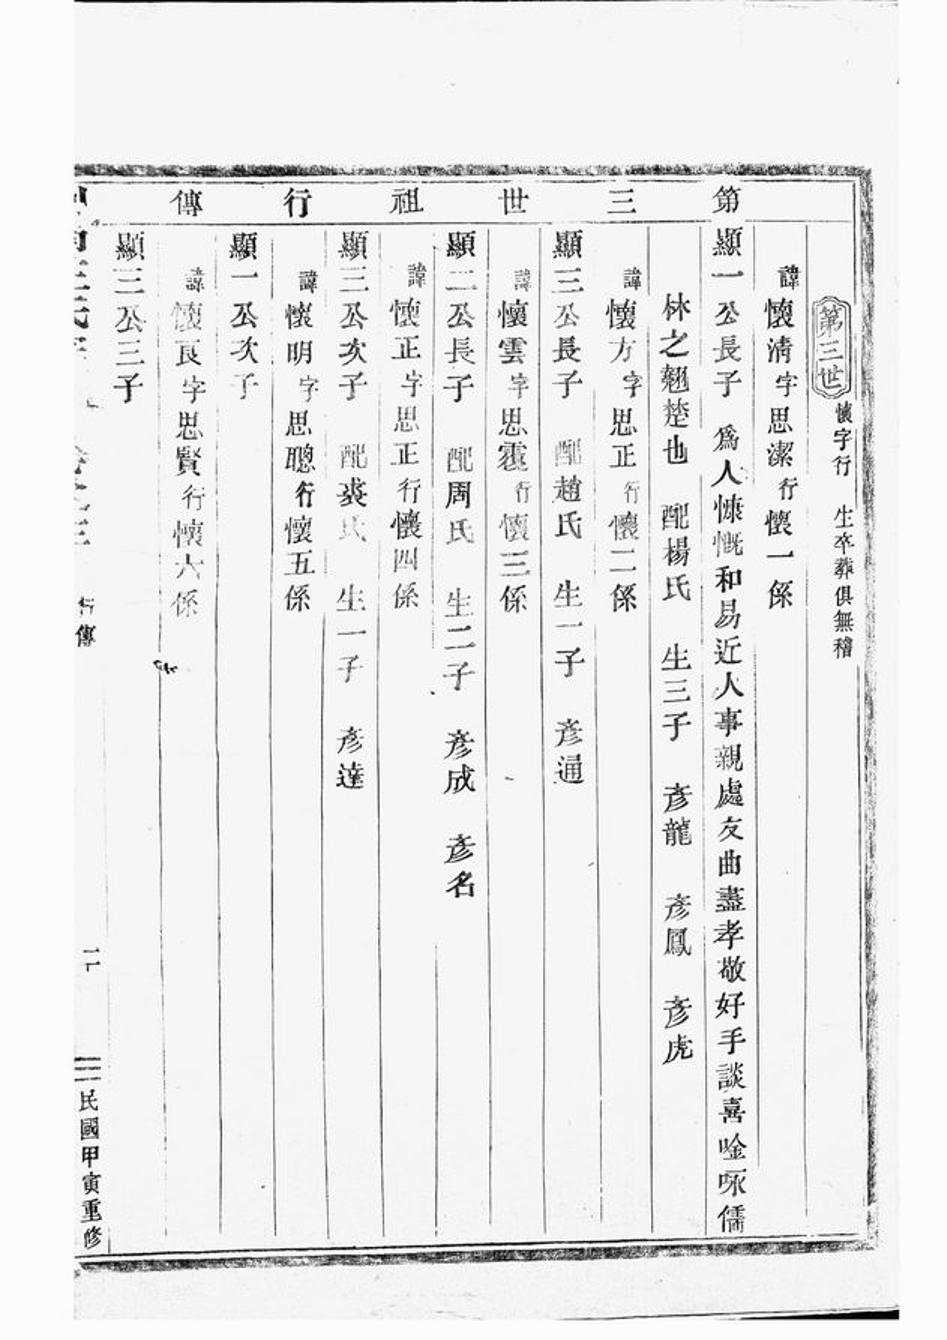 第三世祖行傳
第三世 懷字行 生卒葬俱無稽
諱懷清字思潔行懷一係
顯一公長子 為人慷慨和易近人事親處友曲盡孝敬好手談喜唫咏儒
林之翹楚也 配楊氏 生三子 彥龍 彥鳳 彥虎
諱懷方字思正行懷二係
顯三公長子 配趙氏 生一子 彥通
諱懷雲字思霱行懷三係
顯二公長子 配周氏 生二子 彥成 彥名
諱懷正字思正行懷四係
顯三公次子 配裘氏 生一子 彥達
諱懷明字思聰行懷五係
顯一公次子
諱懷良字思賢行懷六係
顯三公三子
傳
民國甲寅重修